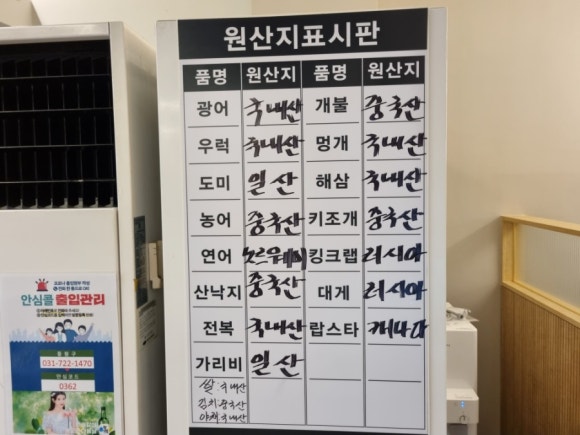 원산지표시판
품명 원산지 품명 원산지
광어 국내산 개불 중국산
우럭 국내산 멍개 국내산
도미 일산 해삼 국내산
농어 중국산 키조개 중국산
연어 노르웨이 킹크랩 러시아
산낙지 중국산 대게 러시아
전복 국내산 랍스타 캐나다
가리비 일산
쌀:국내산
김치:중국산
야채:국내산
안심콜 출입관리
031-722-1470
안심코드
0362